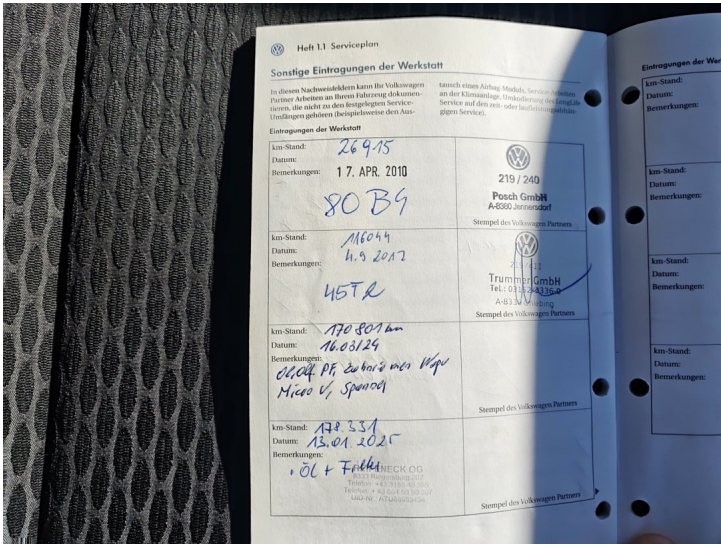 Heft 1.1 Serviceplan
Sonstige Eintragungen der Werkstatt
In diesen Nachweisfeldern kann Ihr Volkswagen
Partner Arbeiten an Ihrem Fahrzeug dokumen-
tieren, die nicht zu den festgelegten Service-
Umfängen gehören (beispielsweise den Aus-
tausch eines Airbag-Moduls, Service-Arbeiten
an der Klimaanlage, Umkodierung des LongLife
Service auf den zeit- oder laufleistungsabhän-
gigen Service).
Eintragungen der Werkstatt
km-Stand: 26915
Datum:
Bemerkungen: 17. APR. 2010
80 BG
219 / 240
Posch GmbH
A-8380 Jennersdorf
Stempel des Volkswagen Partners
km-Stand: 116044
Datum: 4.9 2017
Bemerkungen:
45TR
Trummer GmbH
Tel.:
Stempel des Volkswagen Partners
km-Stand: 170801 km
Datum: 16.03/24
Bemerkungen:
PF, Zahnriemen Wapu
Micro V, Spanner
Stempel des Volkswagen Partners
km-Stand: 178.331
Datum: 13.01.2025
Bemerkungen:
Öl + Filter
NECK OG
Stempel des Volkswagen Partners
Eintragungen der
km-Stand:
Datum:
Bemerkungen:
km-Stand:
Datum:
Bemerkungen:
km-Stand:
Datum:
Bemerkungen:
km-Stand:
Datum:
Bemerkungen: